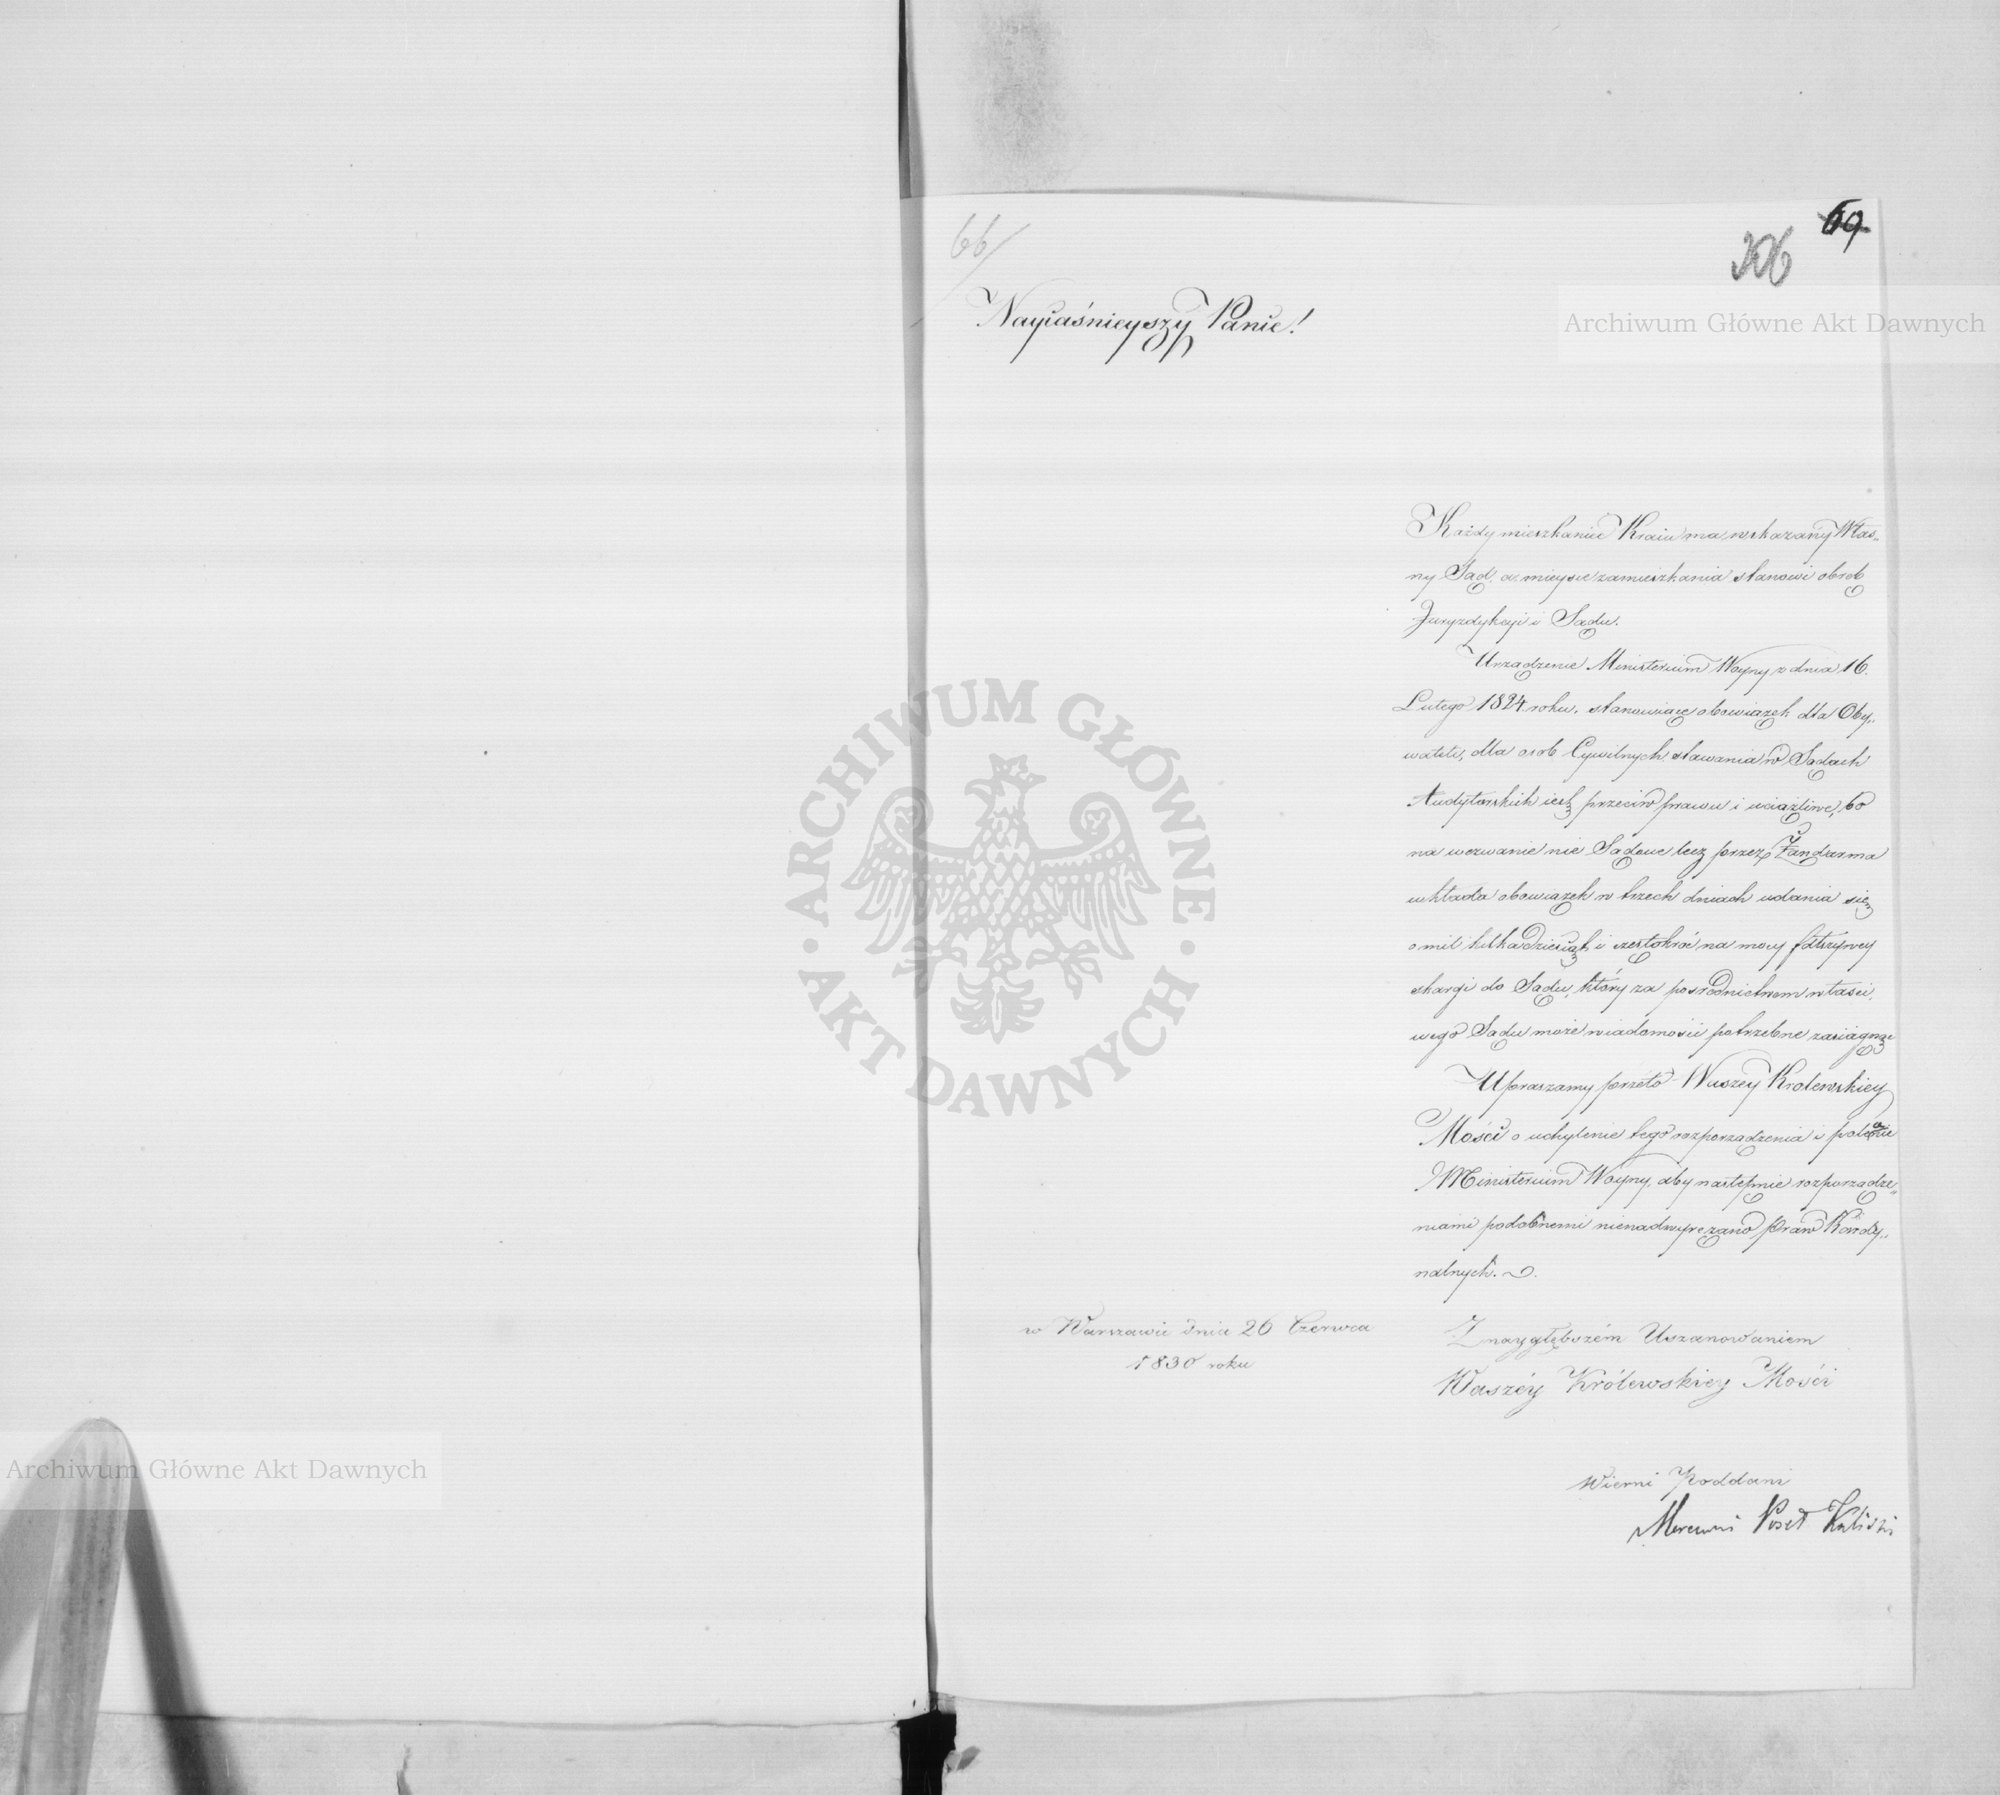 66/
306
69
Nayiaśnieyszy Panie!
Każdy mieszkaniec Kraiu ma wskazany Włas„
ny Sąd, a mieysce zamieszkania stanowi obręb
Juryzdykcyi i Sądu.
Urządzenie Ministerium Woyny z dnia 16.
Lutego 1824 roku, stanowiące obowiązek dla Oby„
wateli, dla osob Cywilnych stawania w Sądach
Audytorskich iest przeciw prawu i uciążliwe, bo
na wezwanie nie Sądowe lecz przez Żandarma
wkłada obowiązek w trzech dniach udania się
o mil kilkadziesiąt i częstokroć na mocy fałszywey
skargi do Sądu, który za pośrednictwem właści„
wego Sądu może wiadomości potrzebne zasiągnąć
Upraszamy przeto Waszey Krolewskiey
Mości o uchylenie tego rozporządzenia i polecenie
Ministerium Woyny, aby następnie rozporządze„
niami podobnemi nienadwyrężano Praw Kardy„
nalnych.
w Warszawie dnia 26 Czerwca
1830 roku
Z naygłębszém Uszanowaniem
Waszéy Królewskiey Mości
Wierni Poddani
Poseł Kaliski
Archiwum Główne Akt Dawnych
Archiwum Główne Akt Dawnych
ARCHIWUM GŁÓWNE · AKT DAWNYCH ·